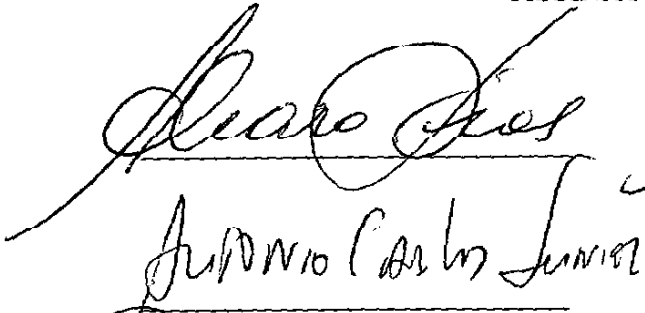 Alvaro Dias
Antonio Carlos Junior